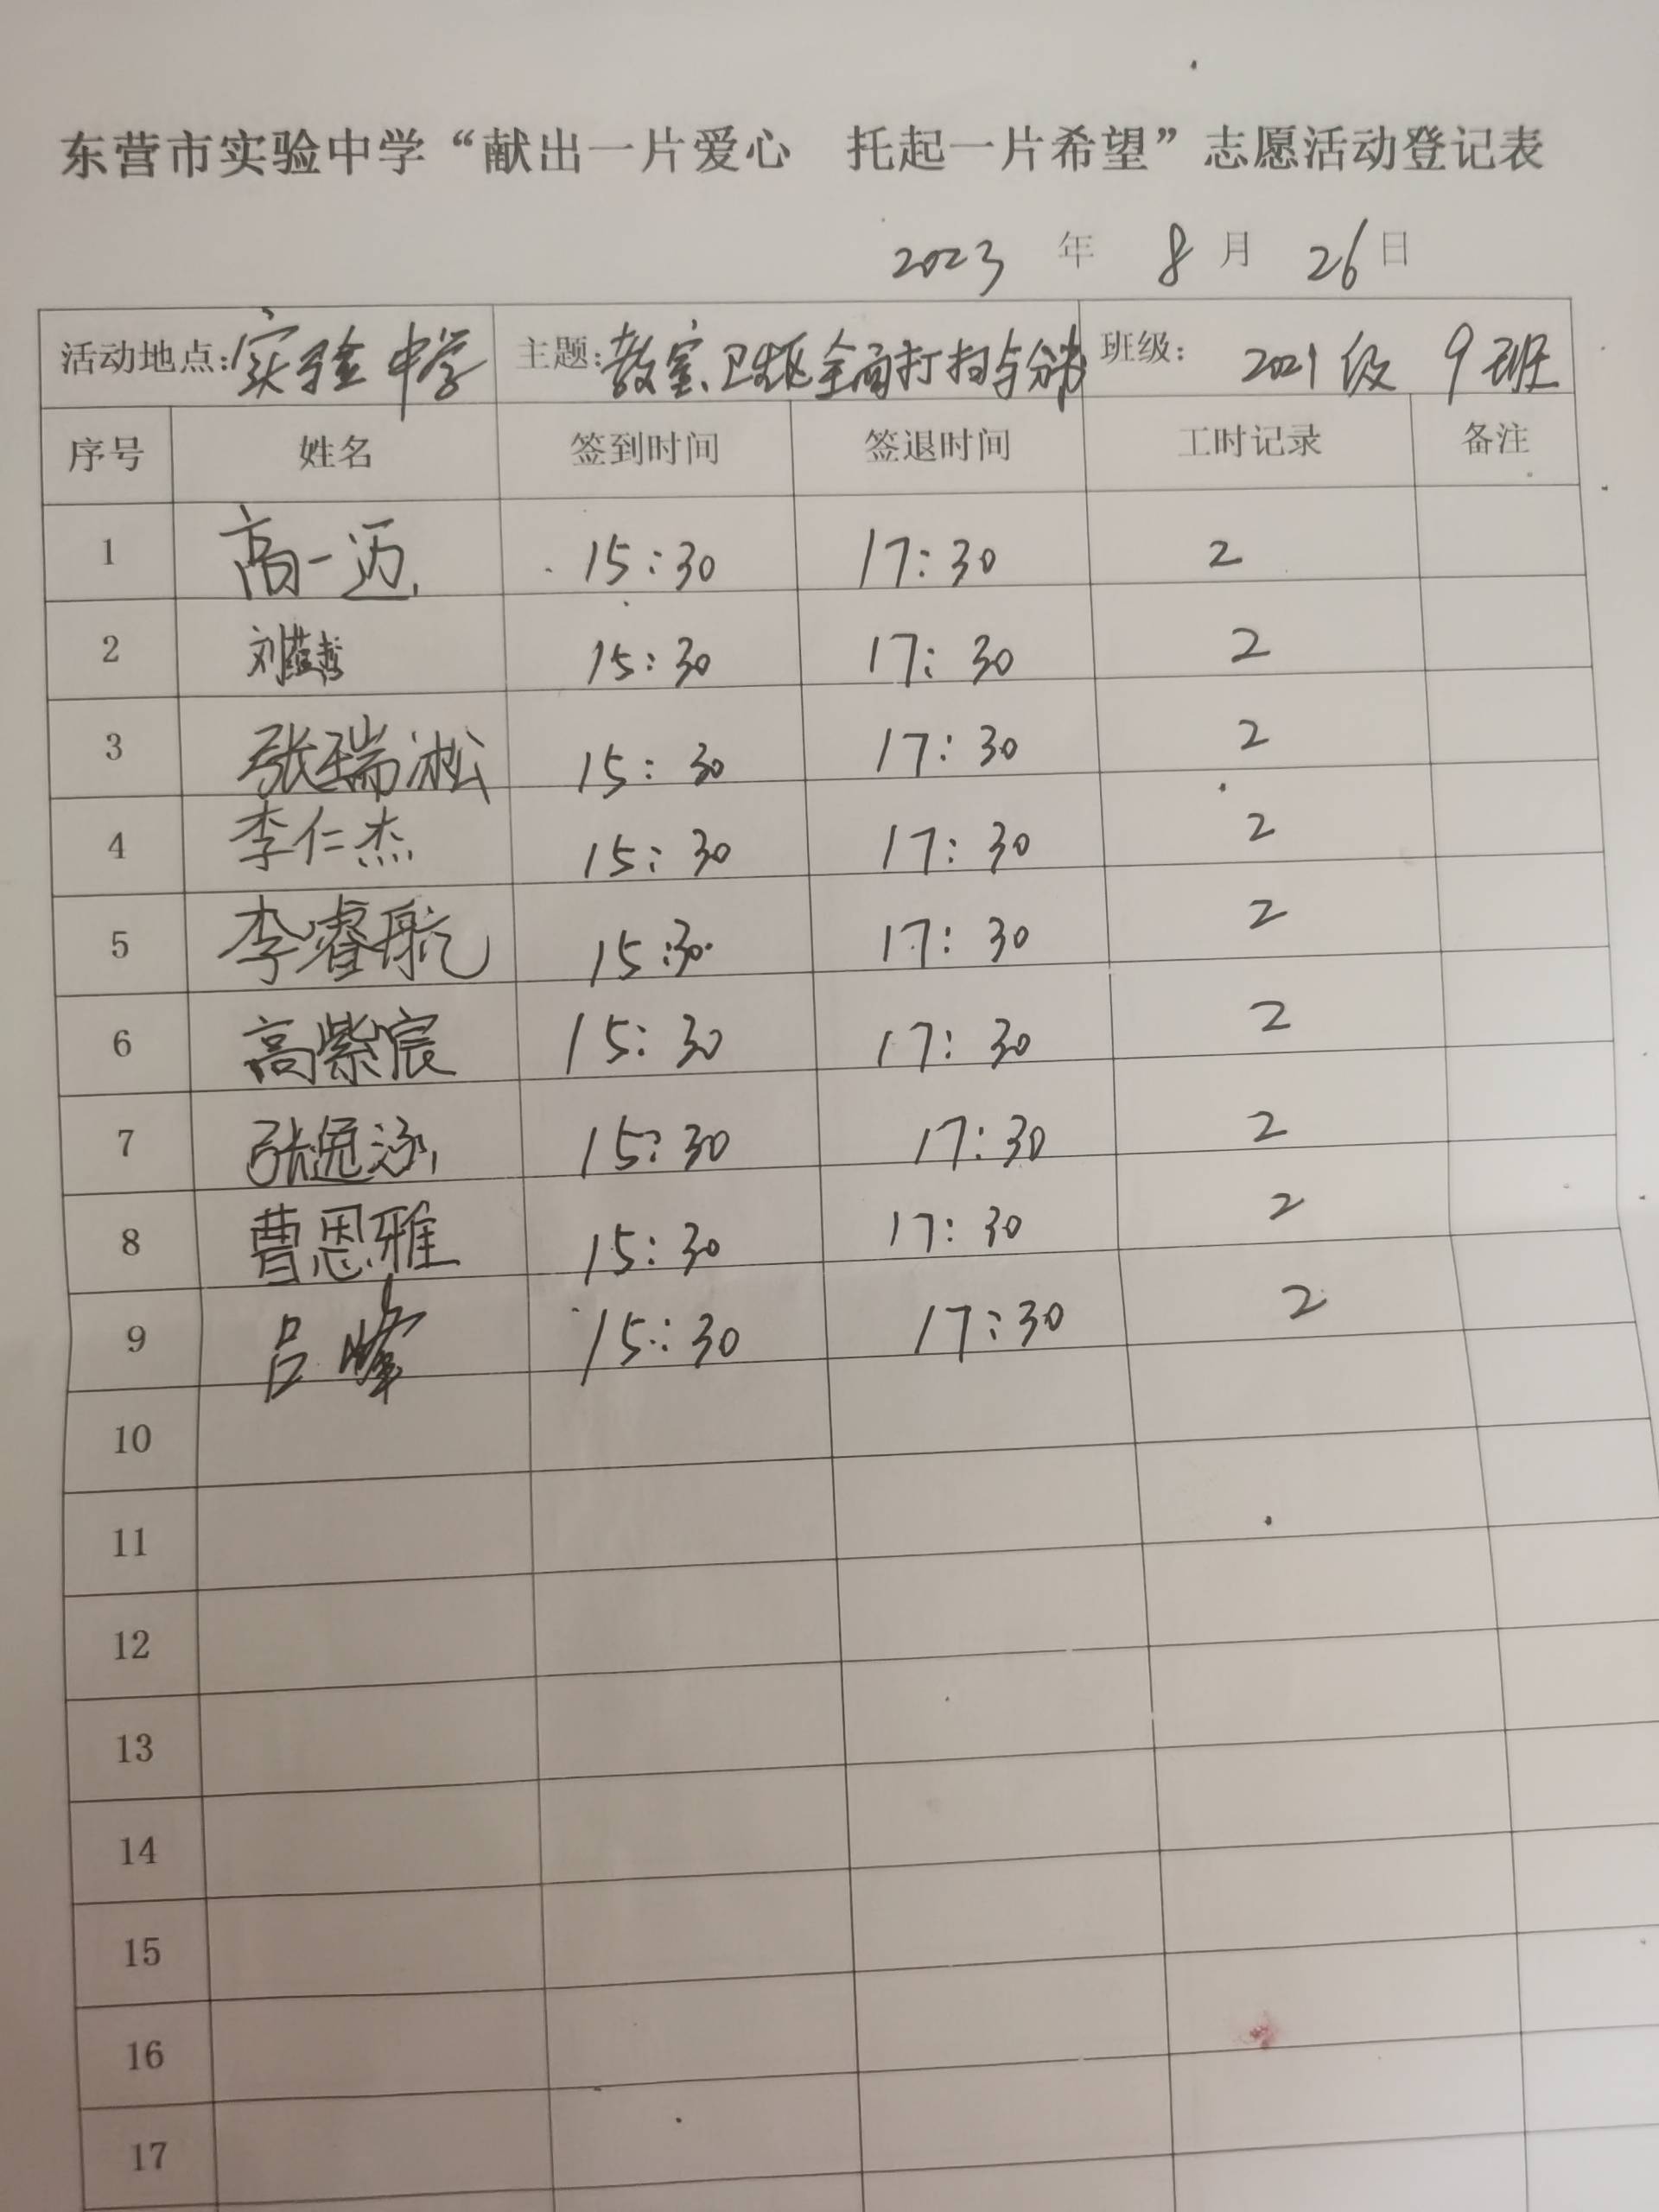 东营市实验中学“献出一片爱心 托起一片希望”志愿活动登记表
2023 年 8 月 26 日
活动地点:实验中学 主题:教室、卫生区全面打扫与 班级: 2021级 9班
序号 姓名 签到时间 签退时间 工时记录 备注
1 高一迈 15:30 17:30 2
2 刘蕴哲 15:30 17:30 2
3 张瑞淞 15:30 17:30 2
4 李仁杰 15:30 17:30 2
5 李睿航 15:30 17:30 2
6 高紫宸 15:30 17:30 2
7 张逸泳 15:30 17:30 2
8 曹恩雅 15:30 17:30 2
9 吕峰 15:30 17:30 2
10
11
12
13
14
15
16
17